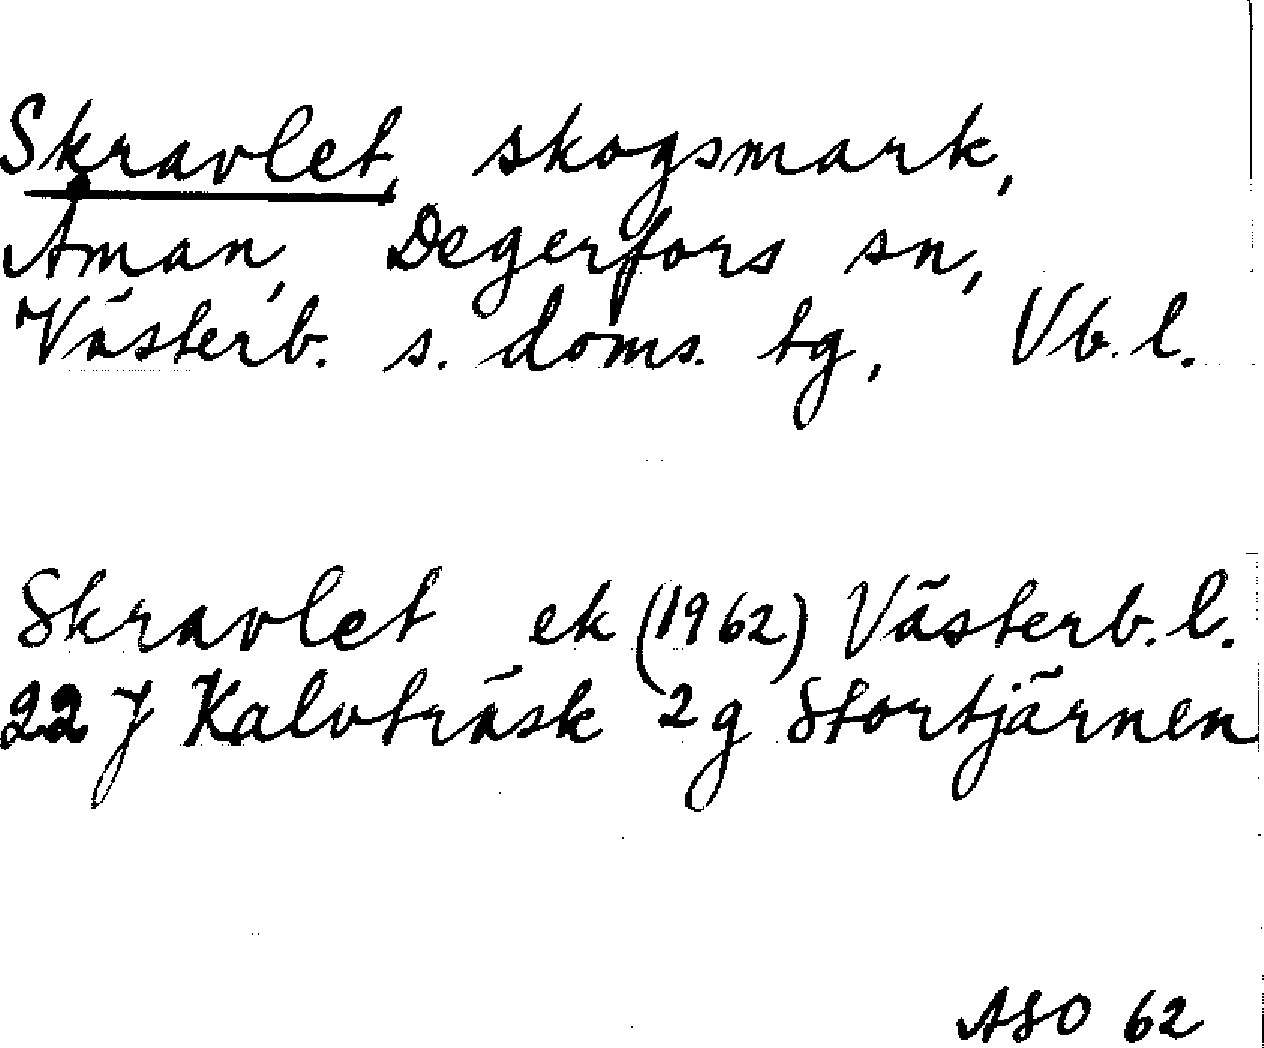 Skravlet, skogsmark,
Åman, Degerfors sn,
Västerb. s. doms. tg, Vb. l.
Skravlet ek (1962) Västerb. l.
22 J Kalvträsk 2 g Stortjärnen
ASO 62